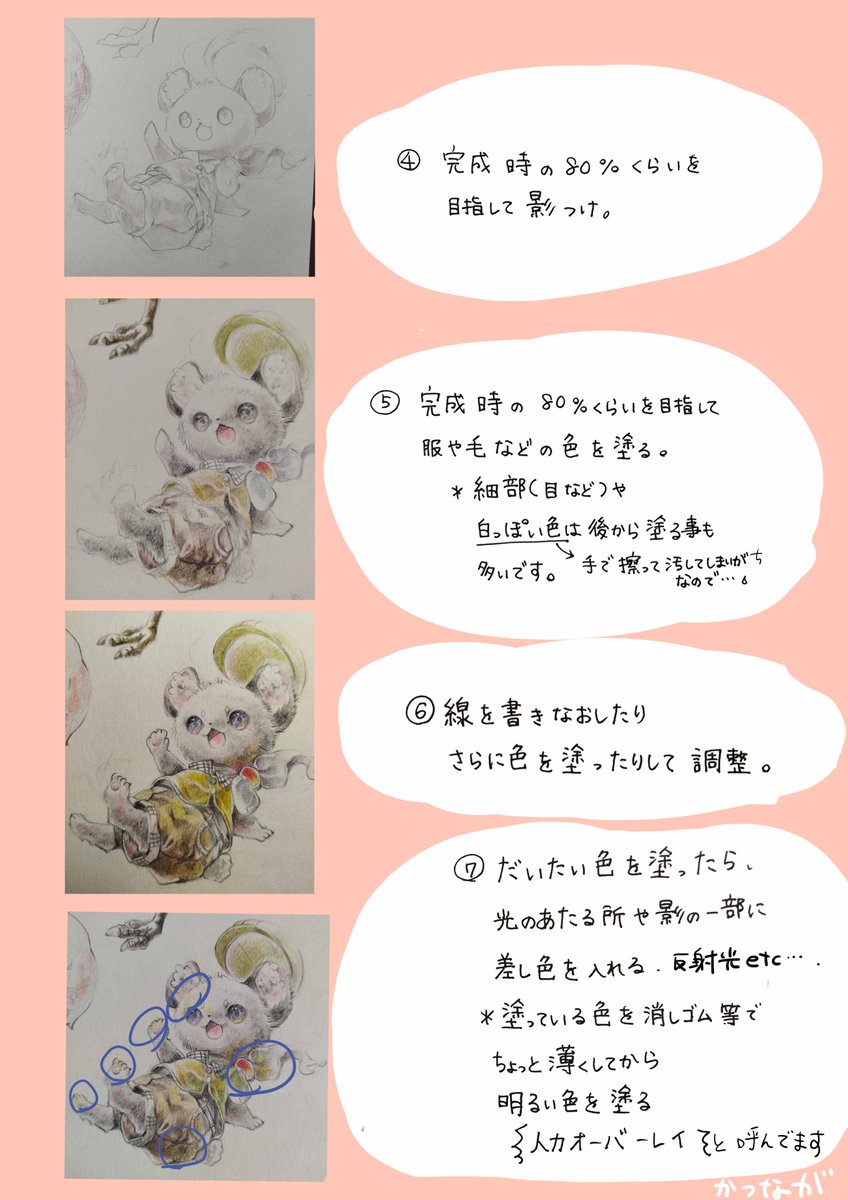 ④ 完成時の80%くらいを
目指して影つけ。
⑤ 完成時の80%くらいを目指して
服や毛などの色を塗る。
*細部(目など)や
白っぽい色は後から塗る事も
多いです。
手で擦って汚してしまいがち
なので…。
⑥ 線を書きなおしたり
さらに色を塗ったりして調整。
⑦ だいたい色を塗ったら、
光のあたる所や影の一部に
差し色を入れる.反射光etc….
*塗っている色を消しゴム等で
ちょっと薄くしてから
明るい色を塗る
人力オーバーレイと呼んでます
かつなが